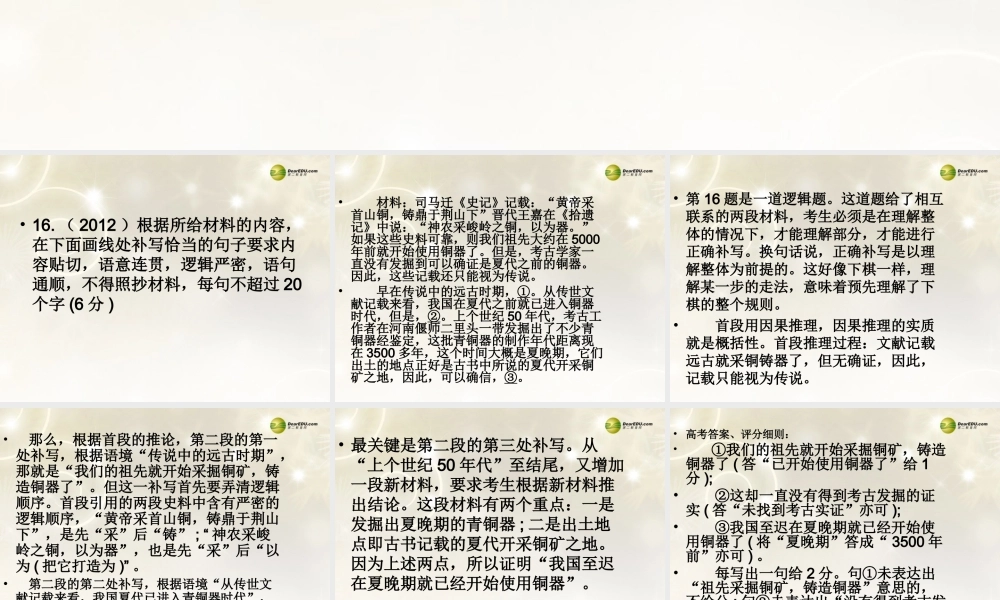 DearEDU.com
16.（ 2012 ）根据所给材料的内容，
在下面画线处补写恰当的句子要求内
容贴切，语意连贯，逻辑严密，语句
通顺，不得照抄材料，每句不超过 20
个字 (6 分 )
DearEDU.com
材料：司马迁《史记》记载：“黄帝采
首山铜，铸鼎于荆山下”晋代王嘉在《拾遗
记》中说：“神农采峻岭之铜，以为器。”
如果这些史料可靠，则我们祖先大约在 5000
年前就开始使用铜器了。但是，考古学家一
直没有发掘到可以确证是夏代之前的铜器。
因此，这些记载还只能视为传说。
早在传说中的远古时期，①。从传世文
献记载来看，我国在夏代之前就已进入铜器
时代，但是，②。上个世纪 50 年代，考古工
作者在河南偃师二里头一带发掘出了不少青
铜器经鉴定，这批青铜器的制作年代距离现
在 3500 多年，这个时间大概是夏晚期，它们
出土的地点正好是古书中所说的夏代开采铜
矿之地，因此，可以确信，③。
DearEDU.com
第 16 题是一道逻辑题。这道题给了相互
联系的两段材料，考生必须是在理解整
体的情况下，才能理解部分，才能进行
正确补写。换句话说，正确补写是以理
解整体为前提的。这好像下棋一样，理
解某一步的走法，意味着预先理解了下
棋的整个规则。
首段用因果推理，因果推理的实质
就是概括性。首段推理过程：文献记载
远古就采铜铸器了，但无确证，因此，
记载只能视为传说。
DearEDU.com
那么，根据首段的推论，第二段的第一
处补写，根据语境“传说中的远古时期”，
那就是“我们的祖先就开始采掘铜矿，铸
造铜器了”。但这一补写首先要弄清逻辑
顺序。首段引用的两段史料中含有严密的
逻辑顺序，“黄帝采首山铜，铸鼎于荆山
下”，是先“采”后“铸”；“神农采峻
岭之铜，以为器”，也是先“采”后“以
为 ( 把它打造为 )”。
第二段的第二处补写，根据语境“从传世文
献记载来看，我国夏代已进入青铜器时代”，
DearEDU.com
最关键是第二段的第三处补写。从
“上个世纪 50 年代”至结尾，又增加
一段新材料，要求考生根据新材料推
出结论。这段材料有两个重点：一是
发掘出夏晚期的青铜器 ; 二是出土地
点即古书记载的夏代开采铜矿之地。
因为上述两点，所以证明“我国至迟
在夏晚期就已经开始使用铜器”。
DearEDU.com
高考答案、评分细则：
①我们的祖先就开始采掘铜矿，铸造
铜器了 ( 答“已开始使用铜器了”给 1
分 );
②这却一直没有得到考古发掘的证
实 ( 答“未找到考古实证”亦可 );
③我国至迟在夏晚期就已经开始使
用铜器了 ( 将“夏晚期”答成“ 3500 年
前”亦可 ) 。
每写出一句给 2 分。句①未表达出
“祖先采掘铜矿，铸造铜器”意思的，